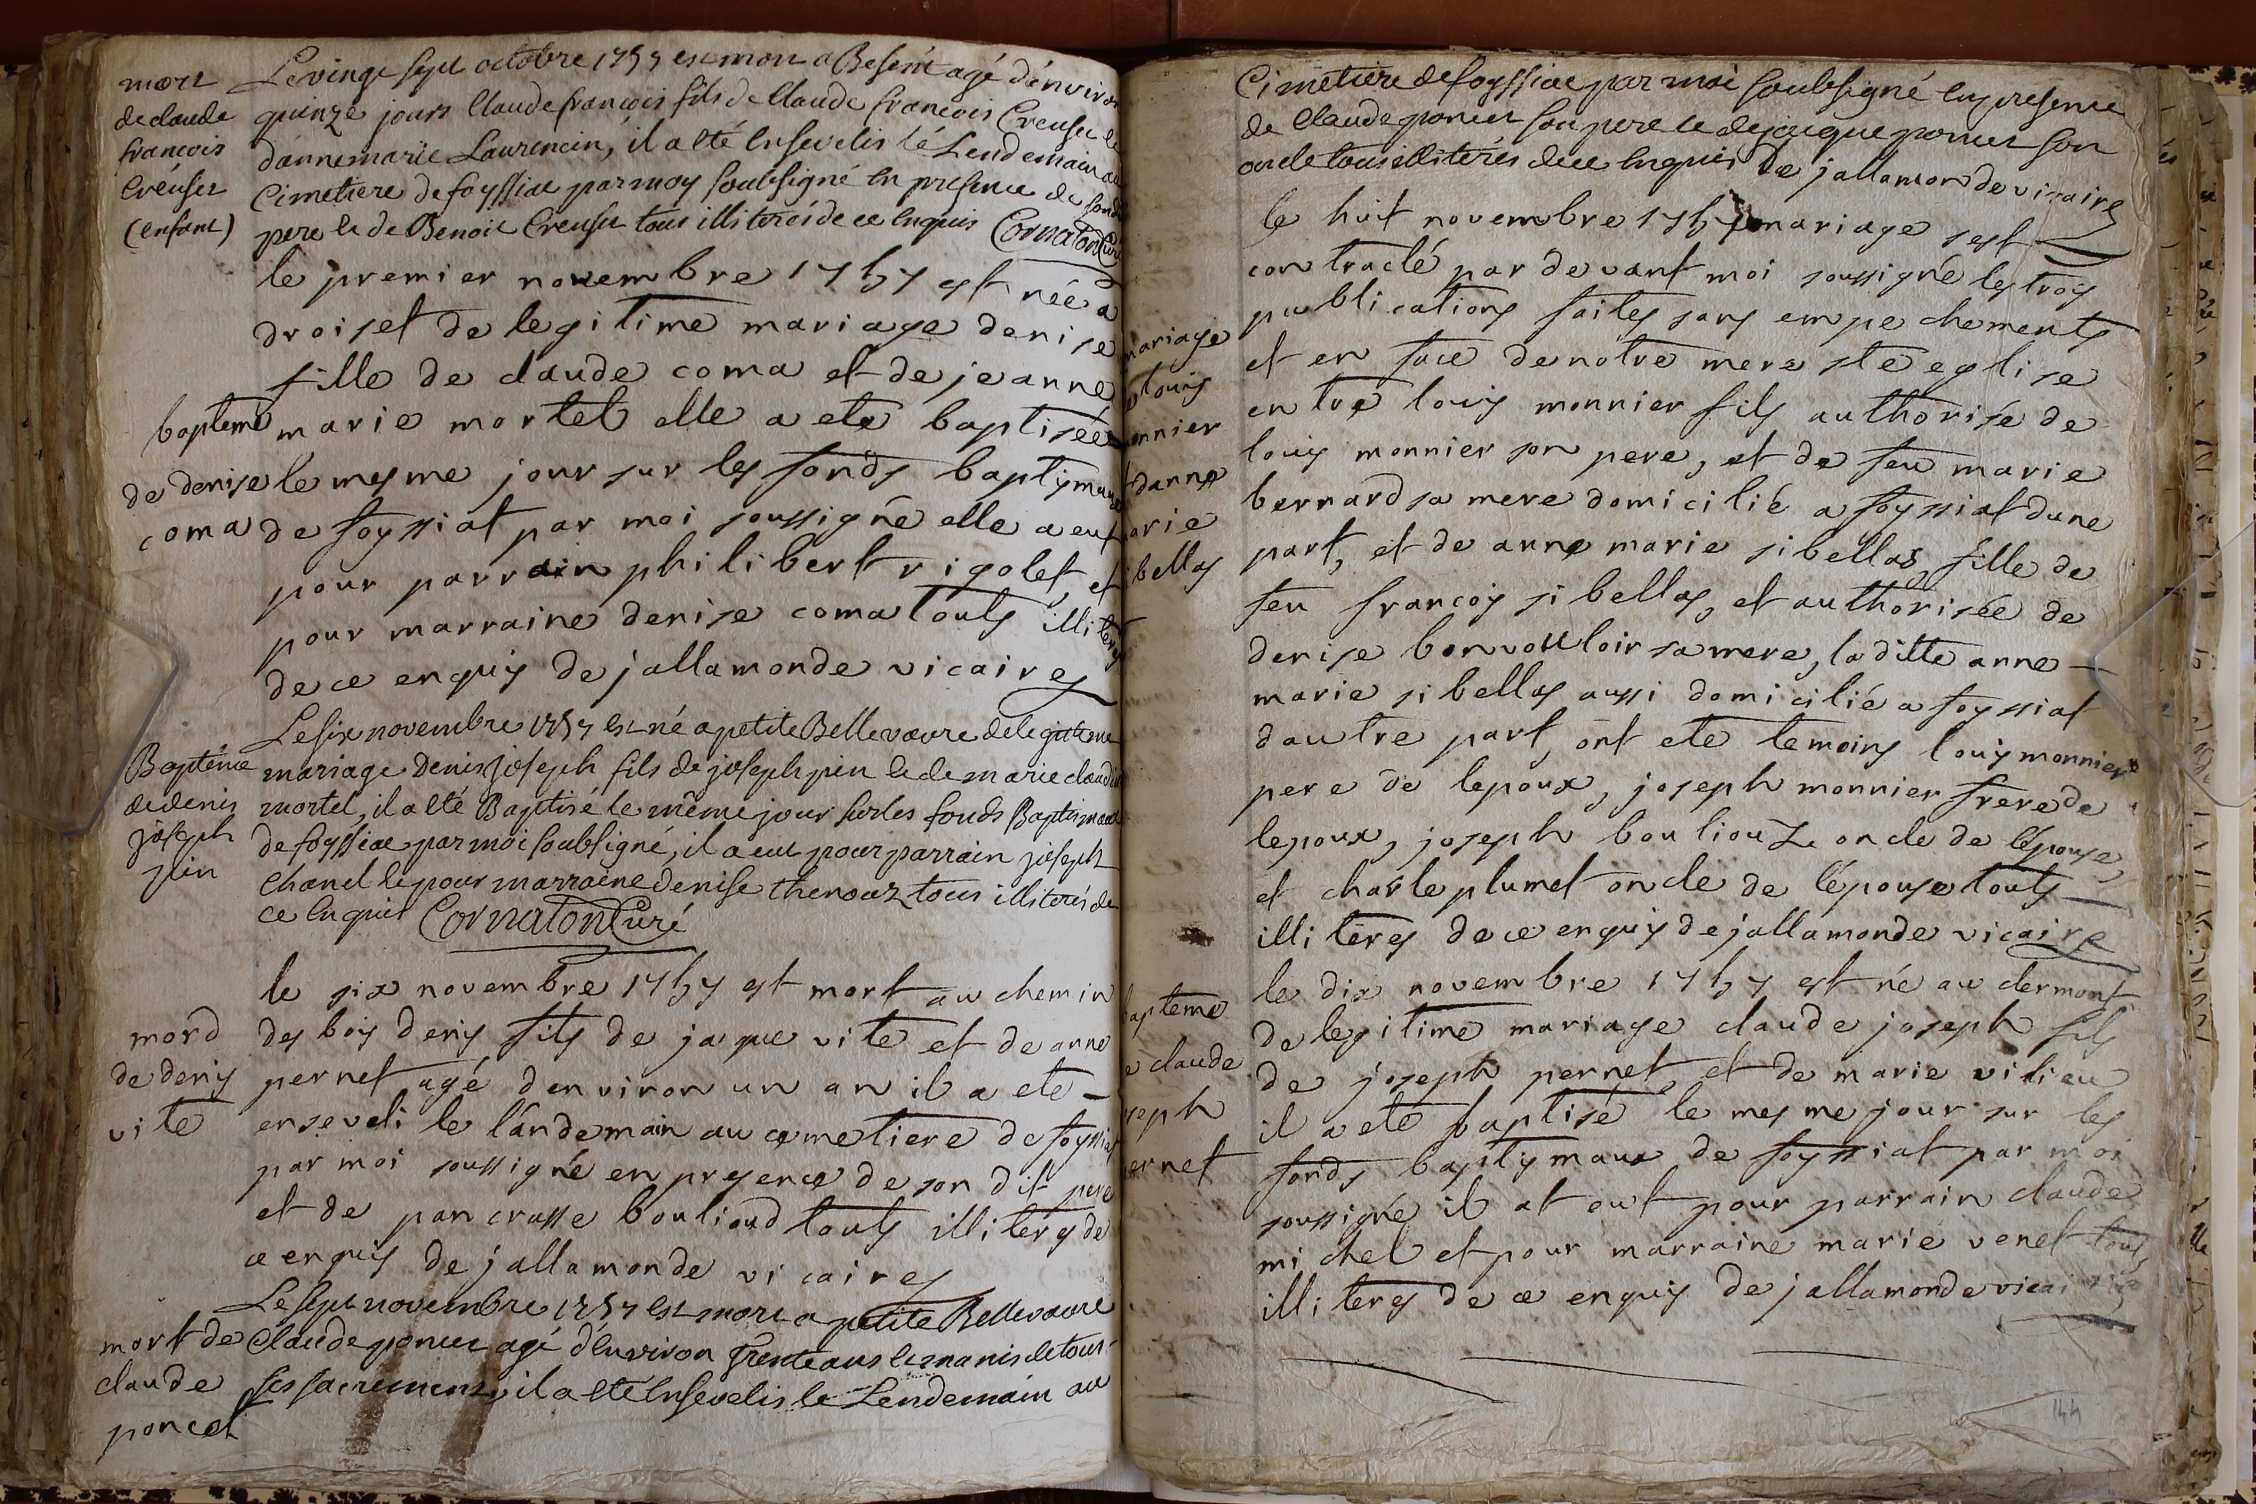 mort
de claude
françois
Creuset
(enfant)
Le vingt sept octobre 1757 est mort a Beserit agé d'environ
quinze jours Claude françois fils de Claude françois Creuset et
d'annemarie Laurencin, il a été Ensevelis le Lendemain au
Cimetiere de foyssiat par moy soubsigné en presence de sondit
pere et de Benoit Creuset tous illiterés de ce Enquis Cornaton Curé
bapteme
de denise
coma
le premier novembre 1757 est née a
droiset de legitime mariage denise
fille de claude coma et de jeanne
marie mortel elle a ete baptisée
le mesme jour sur les fonds baptismaux
de foyssiat par moi soussigné elle a eut
pour parrain philibert rigolet, et
pour marraine denise coma touts illiteres
de ce enquis de jallamonde vicaire
Baptême
de denis
joseph
pin
Le six novembre 1757 est né a petite Bellevavre de legitime
mariage Denis joseph fils de joseph pin et de marie claudine
mortel, il a été Baptisé le même jour sur les fonds Baptismaux
de foyssiat par moi soubsigné, il a eut pour parrain joseph
Chanel et pour marraine denise thenoux tous illiterés de
ce Enquis Cornaton Curé
mord
de denis
vite
le six novembre 1757 est mort au chemin
des bois denis fils de jaque vite et de anne
pernet agé denviron un an il a ete
enseveli le landemain au cemetiere de foyssiat
par moi soussigné en presence de son dit pere
et de pancrasse boulioud touts illiteres de
ce enquis de jallamonde vicaire
mort de
claude
poncet
Le sept novembre 1757 est mort a petite Bellevavre
Claude poncet agé d'Environ trente ans et munis de tous
ses sacremens, il a été Ensevelis le Lendemain au
Cimetiere de foyssiat par moi soubsigné En presence
de Claude poncet son pere et de jacque poncet son
oncle tous illiterés de ce Enquis de jallamonde vicaire
mariage
de louis
monnier
et danne
marie
sibellas
le huit novembre 1757 mariage sest
contracté par devant moi soussigné les trois
publications faites sans empechements
et en face de notre mere ste eglise
entre louis monnier fils authorisé de
louis monnier son pere, et de feu marie
bernard sa mere domicilié a foyssiat dune
part, et de anne marie sibellas, fille de
feu francois sibellas, et authorisée de
denise bonvouloir sa mere, la ditte anne
marie sibellas aussi domicilié a foyssiat
dautre part, ont ete temoins louis monnier
pere de lepoux, joseph monnier frere de
lepoux, joseph bouliouz oncle de lépouse,
et charle plumet oncle de lépouse touts
illiteres de ce enquis de jallamonde vicaire
bapteme
de claude
joseph
pernet
le dix novembre 1757 est né au clermont
de legitime mariage claude joseph fils
de joseph pernet, et de marie vitieu
il a ete baptisé le mesme jour sur les
fonds baptismaux de foyssiat par moi
soussigné il at eut pour parrain claude
michel et pour marraine marie venet touts
illiteres de ce enquis de jallamonde vicaire
144